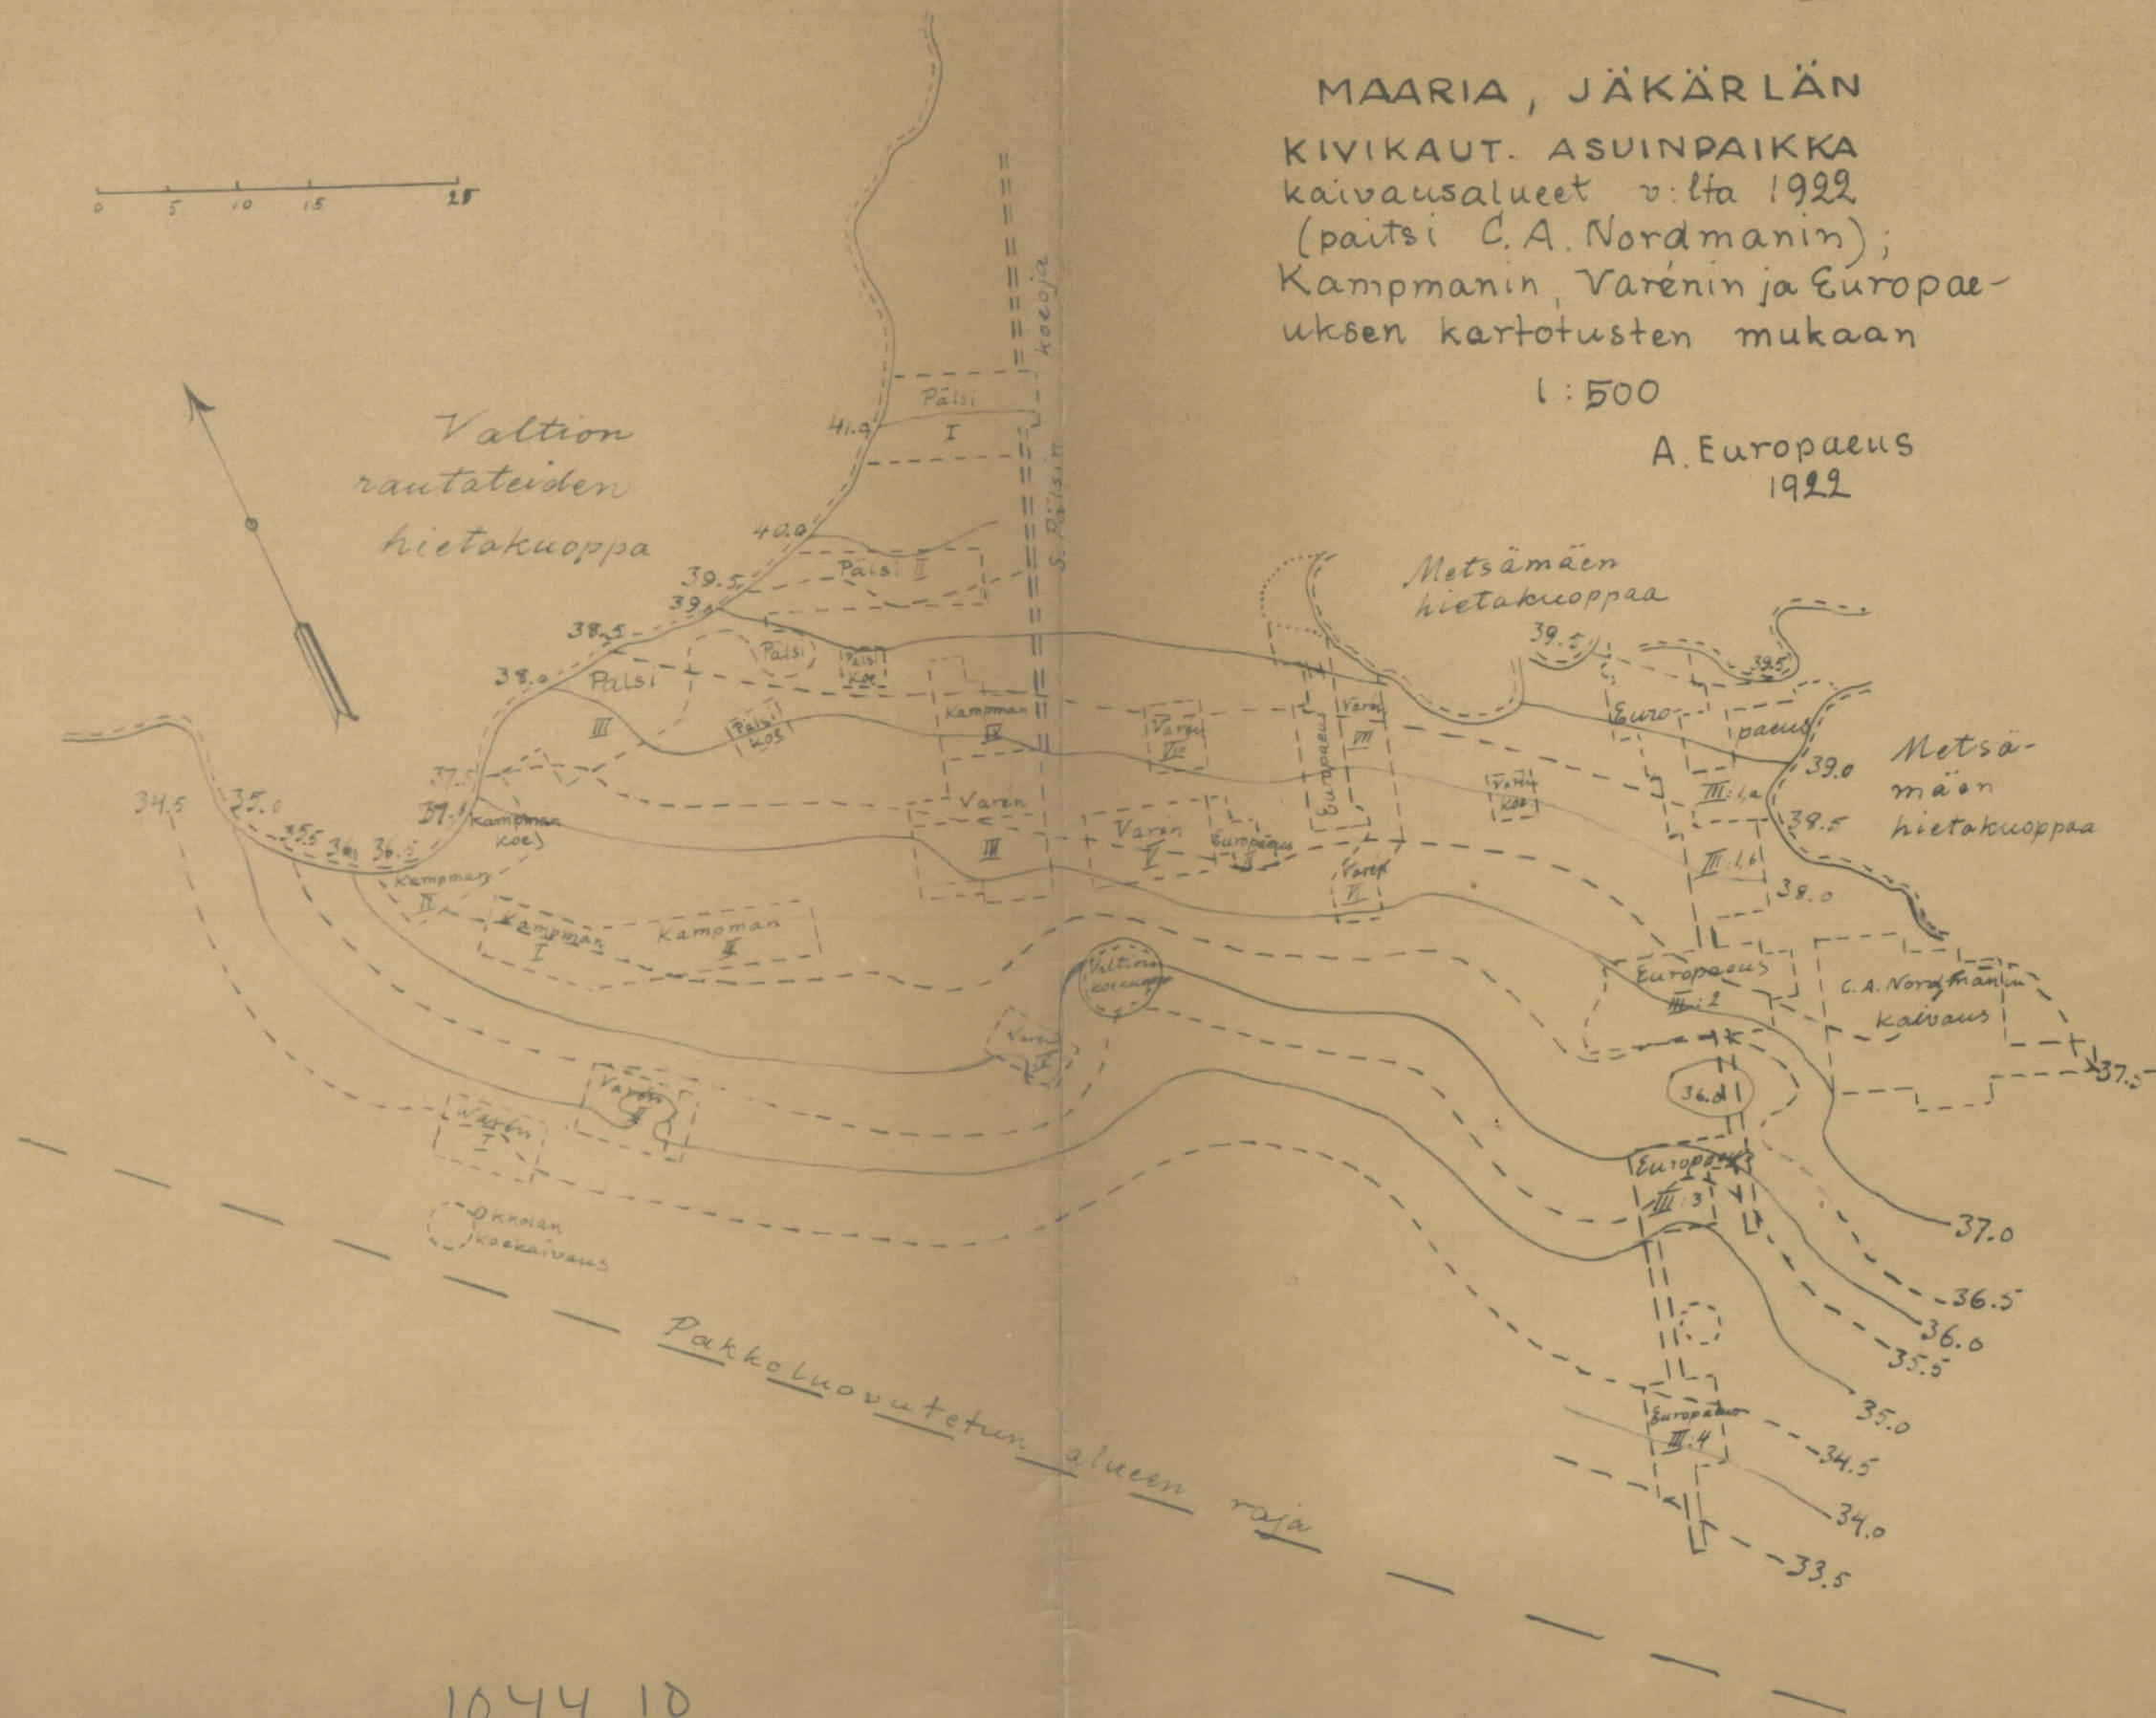 MAARIA, JÄKÄRLÄN
KIVIKAUT. ASUINPAIKKA
kaivausalueet v:lta 1922
(paitsi C. A. Nordmanin);
Kampmanin, Varénin ja Europae-
uksen kartotusten mukaan
1:500
A. Europaeus
1922
0 5 10 15 25
Valtion
rautateiden
hietakuoppa
koeoja
S. Pälsin
Pälsi
I
41.0
40.0
Pälsi II
39.5
39.
38.5
38.0
Pälsi
III
Pälsi
Pälsi
koe
Pälsi
koe
37.5
37.
Kampman
koe
34.5
35.0
35.5
36.
36.5
Kampman
II
Kampman
I
Kampman
III
Kampman
IV
Varén
III
Varén
V
Europaeus
II
Varén
VIII
Europaeus
Varén
VII
Varén
VI
Varén
koe
Metsämäen
hietakuoppaa
39.5
39.5
Euro-
paeus
III:1,a
III:1,b
39.0
38.5
38.0
Metsä-
mäen
hietakuoppaa
Europaeus
III:2
C. A. Nordmanin
kaivaus
37.5
36.0
Valtion
koekuoppa
Varén
IV
Varén
II
Warén
I
Okkolan
koekaivaus
Europaeus
III:3
37.0
36.5
36.0
35.5
35.0
Europaeus
III:4
34.5
34.0
33.5
Pakkoluovutetun alueen raja
1044 10